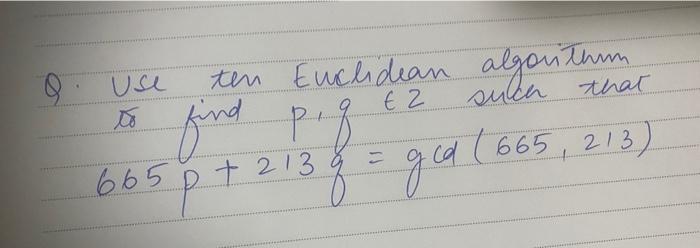 Q. Use ten Euclidean algorithm
to find p, q ∈ Z such that
665p + 213q = gcd (665, 213)